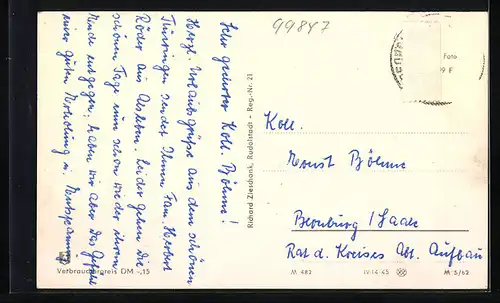 99847
Sehr geehrter Koll. Böhme!
Herzl. Urlaubsgrüße aus dem schönen
Thüringen sendet Ihnen Fam. Herbert
Röder aus Leider gehen die
schönen Tage nun schon wieder ihrem
Ende entgegen, haben wir aber das Gefühl
einer guten Erholung u. Entspannung
Verbraucherpreis DM -,15
Richard Zieschank, Rudolstadt - Reg.-Nr. 21
Foto
Koll.
Ernst Böhme
Bernburg/Saale
Rat d. Kreises Abt. Aufbau
M 482
IV-14-45
M 5/62